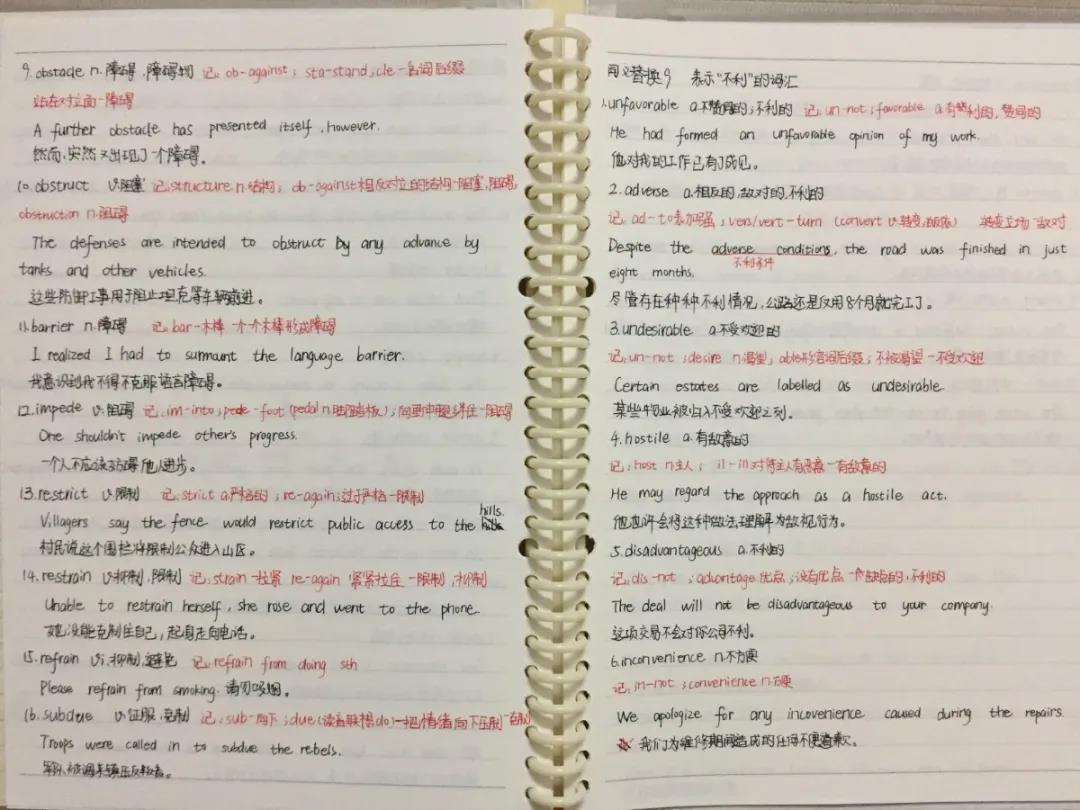 9. obstacle n. 障碍, 障碍物 记: ob-against; sta-stand; cle-名词后缀
站在对立面-障碍
A further obstacle has presented itself, however.
然而, 突然又出现了一个障碍。
10. obstruct v. 阻塞 记: structure n. 结构; ob-against 相反对立的结构-阻塞, 阻碍
obstruction n. 阻碍
The defenses are intended to obstruct by any advance by
tanks and other vehicles.
这些防御工事用于阻止坦克等车辆前进。
11. barrier n. 障碍 记: bar-木棒 一个个木棒形成障碍
I realized I had to surmount the language barrier.
我意识到我不得不克服语言障碍。
12. impede v. 阻碍 记: im-into; pede-foot (pedal n. 脚踏板); 向里中脚绊住-阻碍
One shouldn't impede other's progress.
一个人不应该妨碍他人进步。
13. restrict v. 限制 记: strict a. 严格的; re-again; 过于严格-限制
Villagers say the fence would restrict public access to the hills.
村民说这个围栏将限制公众进入山区。
14. restrain v. 抑制, 限制 记: strain-拉紧 re-again 紧紧拉住-限制, 抑制
Unable to restrain herself, she rose and went to the phone.
她没能克制住自己, 起身走向电话。
15. refrain vi. 抑制, 避免 记: refrain from doing sth
Please refrain from smoking. 请勿吸烟。
16. subdue v. 征服, 克制 记: sub-向下; due (读音联想do)-把情绪向下压制-克制
Troops were called in to subdue the rebels.
军队被调来镇压反叛者。
同义替换9 表示"不利"的词汇
1. unfavorable a. 不赞同的; 不利的 记: un-not; favorable a. 有利的, 赞同的
He had formed an unfavorable opinion of my work.
他对我的工作已有了成见。
2. adverse a. 相反的, 敌对的, 不利的
记: ad-to表加强; vers/vert-turn (convert v. 转变, 皈依) 转变立场-敌对
Despite the adverse conditions, the road was finished in just
不利条件
eight months.
尽管存在种种不利情况, 公路还是仅用8个月就完工了。
3. undesirable a. 不受欢迎的
记: un-not; desire n. 渴望; able形容词后缀; 不被渴望-不受欢迎
Certain estates are labelled as undesirable.
某些物业被归入不受欢迎之列。
4. hostile a. 有敌意的
记: host n. 主人; il-ill 对待主人有恶意-有敌意的
He may regard the approach as a hostile act.
他也许会将这种做法理解为敌视行为。
5. disadvantageous a. 不利的
记: dis-not; advantage 优点; 没有优点-有缺陷的, 不利的
The deal will not be disadvantageous to your company.
这项交易不会对你公司不利。
6. inconvenience n. 不方便
记: in-not; convenience n. 方便
We apologize for any incovenience caused during the repairs.
我们为维修期间造成的任何不便道歉。